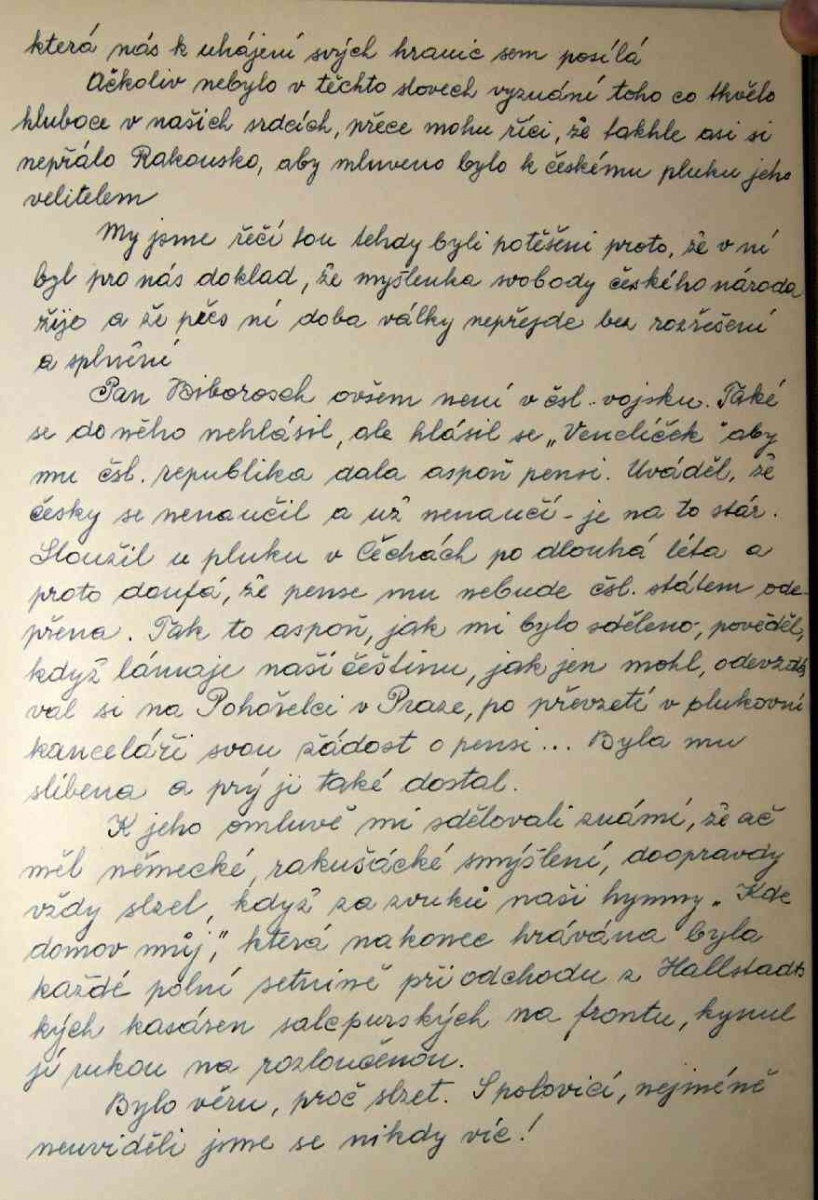 která nás k uhájení svých hranic sem posílá
Ačkoliv nebylo v těchto slovech vyznání toho co tkvělo
hluboce v našich srdcích, přece mohu říci, že takhle asi si
nepřálo Rakousko, aby mluveno bylo k českému pluku jeho
velitelem
My jsme řečí tou tehdy byli potěšeni proto, že v ní
byl pro nás doklad, že myšlenka svobody českého národa
žije a že přes ní doba války nepřejde bez rozřešení
a splnění
Pan Biborosch ovšem není v čsl. vojsku. Také
se do něho nehlásil, ale hlásil se „Venclíček" aby
mu čsl. republika dala aspoň pensi. Uváděl, že
česky se nenaučil a už nenaučí - je na to stár.
Sloužil u pluku v Čechách po dlouhá léta a
proto doufá, že pense mu nebude čsl. státem ode-
přena. Tak to aspoň, jak mi bylo sděleno, pověděl,
když lámaje naší češtinu, jak jen mohl, odevzdá-
val si na Pohořelci v Praze, po převzetí v plukovní
kanceláři svou žádost o pensi... Byla mu
slíbena a prý ji také dostal.
K jeho omluvě mi sdělovali známí, že ač
měl německé, rakušácké smýšlení, doopravdy
vždy slzel, když za zvuků naši hymny „Kde
domov můj," která nakonec hrávána byla
každé polní setnině při odchodu z Hallstadts
kých kasáren salcpurských na frontu, kynul
jí rukou na rozloučenou.
Bylo věru, proč slzet. S polovicí, nejméně
neuviděli jsme se nikdy víc!